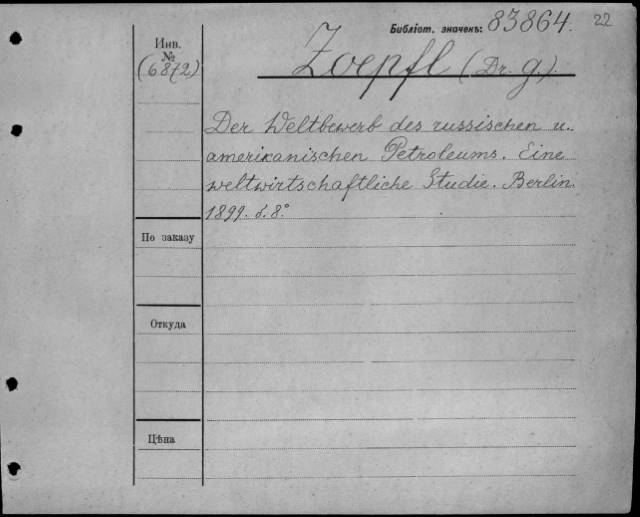 Библіот. значекъ: 83864. 22
Инв.
№
(6872)
Zoepfl (Dr. G.).
Der Weltbewerb des russischen u.
amerikanischen Petroleums. Eine
weltwirtschaftliche Studie. Berlin.
1899. 8°
По заказу
Откуда
Цѣна